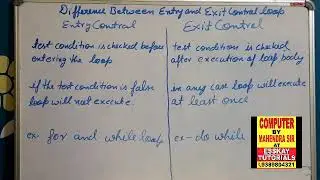 Difference Between Entry and Exit Control loop
Entry Control
Exit Control
test condition is checked before
entering the loop
test condition is checked
after execution of loop body
if the test condition is false
loop will not execute.
in any case loop will execute
at least once
ex- for and while loop
ex- do while
COMPUTER
BY
MAHENDRA SIR
AT
ESSKAY
TUTORIALS